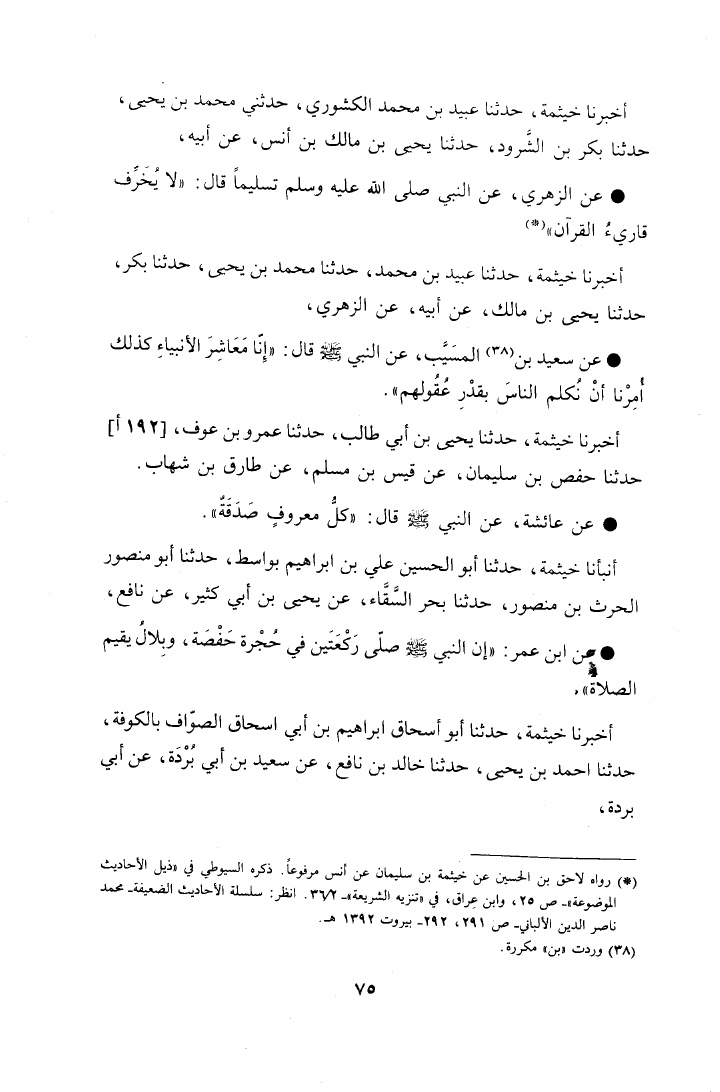 أخبرنا خيثمة، حدثنا عبيد بن محمد الكشوري، حدثني محمد بن يحيى،
حدثنا بكر بن الشَّرود، حدثنا يحيى بن مالك بن أنس، عن أبيه،
● عن الزهري، عن النبي صلى الله عليه وسلم تسليماً قال: «لا يُخَرِّف
قاريءُ القرآن»(*)
أخبرنا خيثمة، حدثنا عبيد بن محمد، حدثنا محمد بن يحيى، حدثنا بكر،
حدثنا يحيى بن مالك، عن أبيه، عن الزهري،
● عن سعيد بن(٣٨) المسَيَّب، عن النبي ﷺ قال: «إِنّا مَعَاشِرَ الأنبياءِ كذلك
أُمِرْنا أنْ نُكلم الناسَ بقدْرِ عُقُولهم».
أخبرنا خيثمة، حدثنا يحيى بن أبي طالب، حدثنا عمرو بن عوف، [١٩٢ أ]
حدثنا حفص بن سليمان، عن قيس بن مسلم، عن طارق بن شهاب.
● عن عائشة، عن النبي ﷺ قال: «كلُّ معروفٍ صَدَقَةٌ».
أنبأنا خيثمة، حدثنا أبو الحسين علي بن ابراهيم بواسط، حدثنا أبو منصور
الحرث بن منصور، حدثنا بحر السَّقَّاء، عن يحيى بن أبي كثير، عن نافع،
● عن ابن عمر: «إن النبي ﷺ صلّى رَكْعَتَين في حُجْرة حَفْصَة، وبِلالُ يقيم
الصلاة».
أخبرنا خيثمة، حدثنا أبو أسحاق ابراهيم بن أبي اسحاق الصوّاف بالكوفة،
حدثنا احمد بن يحيى، حدثنا خالد بن نافع، عن سعيد بن أبي بُرْدَة، عن أبي
بردة،
(*) رواه لاحق بن الحسين عن خيثمة بن سليمان عن أنس مرفوعاً. ذكره السيوطي في «ذيل الأحاديث
الموضوعة»ـ ص ٢٥، وابن عراق، في «تنزيه الشريعة»ـ ٣٦/٢. انظر: سلسلة الأحاديث الضعيفة ـ محمد
ناصر الدين الألباني ـ ص ٢٩١، ٢٩٢ـ بيروت ١٣٩٢ هـ.
(٣٨) وردت «بن» مكررة.
٧٥